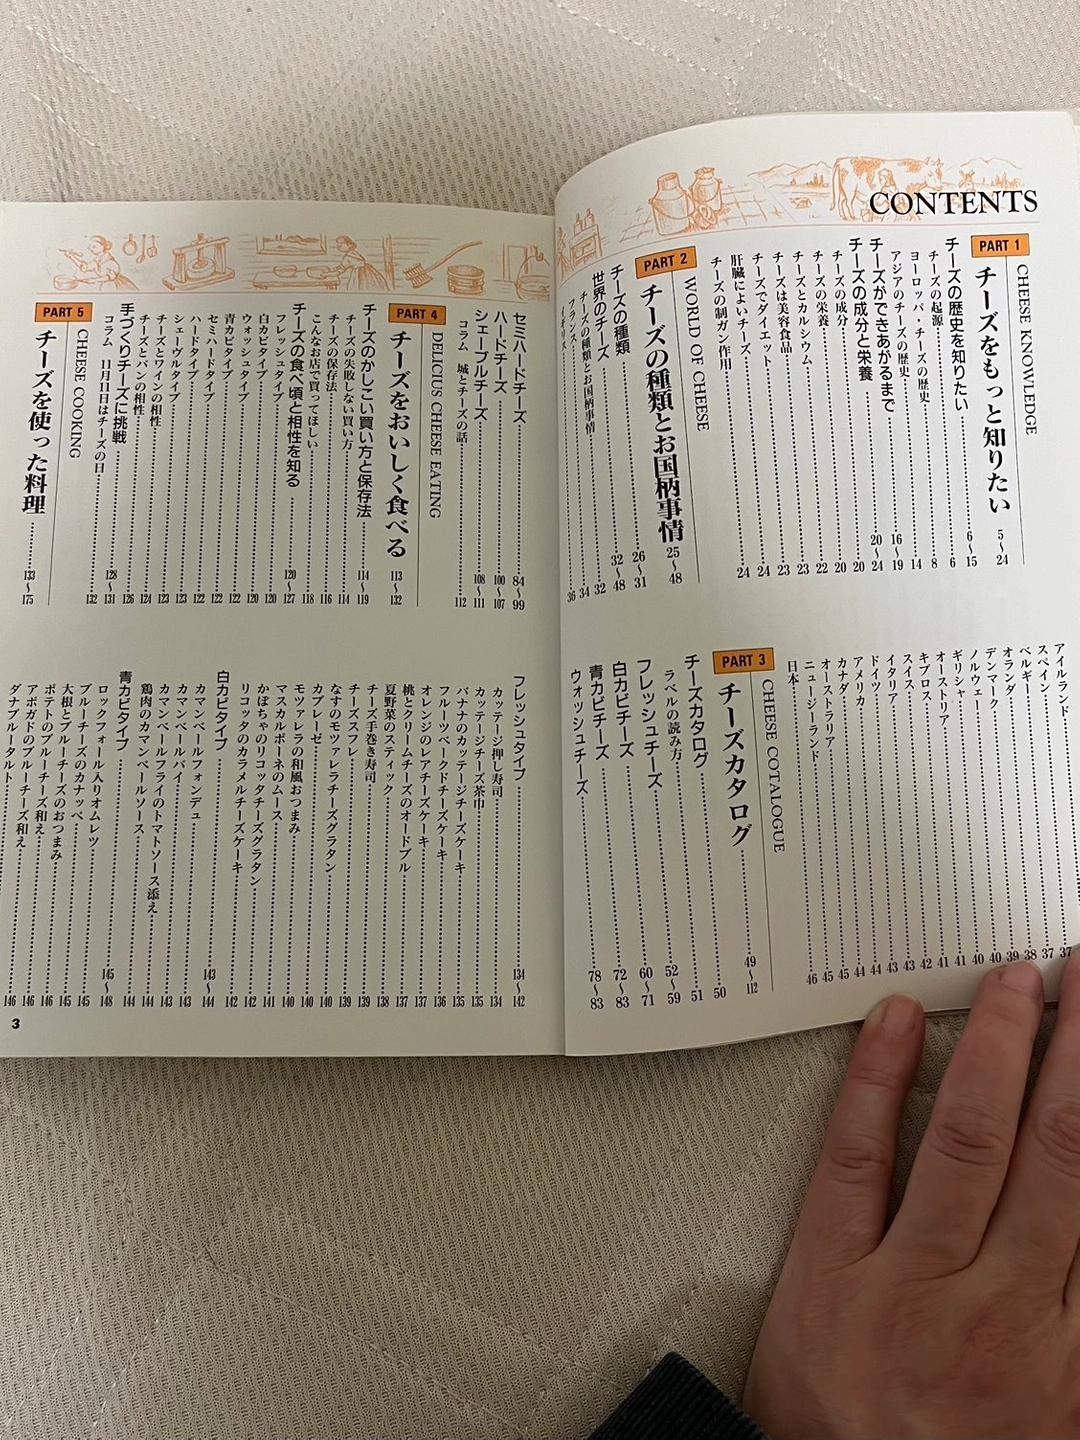 CONTENTS
PART 1
CHEESE KNOWLEDGE
チーズをもっと知りたい 5〜24
チーズの歴史を知りたい 6〜15
チーズの起源 6
ヨーロッパ・チーズの歴史 8
アジアのチーズの歴史 14
チーズができあがるまで 16〜19
チーズの成分と栄養 20〜24
チーズの成分 20
チーズの栄養 20
チーズとカルシウム 22
チーズは美容食品 23
チーズでダイエット 23
肝臓によいチーズ 24
チーズの制ガン作用 24
PART 2
WORLD OF CHEESE
チーズの種類とお国柄事情 25〜48
チーズの種類 26〜31
世界のチーズ 32〜48
チーズの種類とお国柄事情 32
フランス 34
36
アイルランド 37
スペイン 37
ベルギー 38
オランダ 39
デンマーク 40
ノルウェー 40
ギリシャ 41
オーストリア 41
キプロス 42
スイス 43
イタリア 43
ドイツ 44
アメリカ 44
カナダ 45
オーストラリア 45
ニュージーランド 46
日本
PART 3
CHEESE COTALOGUE
チーズカタログ 49〜112
チーズカタログ 50
ラベルの読み方 51
フレッシュチーズ 52〜59
白カビチーズ 60〜71
青カビチーズ 72〜83
ウォッシュチーズ 78〜83
セミハードチーズ 84〜99
ハードチーズ 100〜107
シェーブルチーズ 108〜111
コラム 城とチーズの話 112
PART 4
DELICIUS CHEESE EATING
チーズをおいしく食べる 113〜132
チーズのかしこい買い方と保存法 114〜119
チーズの失敗しない買い方 114
チーズの保存法 116
こんなお店で買ってほしい 118
チーズの食べ頃と相性を知る 120〜127
フレッシュタイプ 120
白カビタイプ 120
ウォッシュタイプ 122
青カビタイプ 122
セミハードタイプ 122
ハードタイプ 123
シェーヴルタイプ 123
チーズとワインの相性 124
チーズとパンの相性 126
手づくりチーズに挑戦 128〜131
コラム 11月11日はチーズの日 132
PART 5
CHEESE COOKING
チーズを使った料理 133〜175
フレッシュタイプ 134〜142
カッテージ押し寿司 134
カッテージチーズ茶巾 135
バナナのカッテージチーズケーキ 135
フルーツベークドチーズケーキ 136
オレンジのレアチーズケーキ 137
桃とクリームチーズのオードブル 137
夏野菜のスティック 138
チーズ手巻き寿司 139
チーズスフレ 139
なすのモツァレラチーズグラタン 140
カプレーゼ 140
モツァレラの和風おつまみ 140
マスカルポーネのムース 140
かぼちゃのリコッタチーズグラタン 141
リコッタのカラメルチーズケーキ 142
白カビタイプ 143〜144
カマンベールフォンデュ 143
カマンベールパイ 143
カマンベールフライのトマトソース添え 144
鶏肉のカマンベールソース 144
青カビタイプ 145〜148
ロックフォール入りオムレツ 145
ブルーチーズのカナッペ 145
大根とブルーチーズのおつまみ 145
ポテトのブルーチーズ和え 146
アボガドのブルーチーズ和え 146
ダナブルータルト 146
3